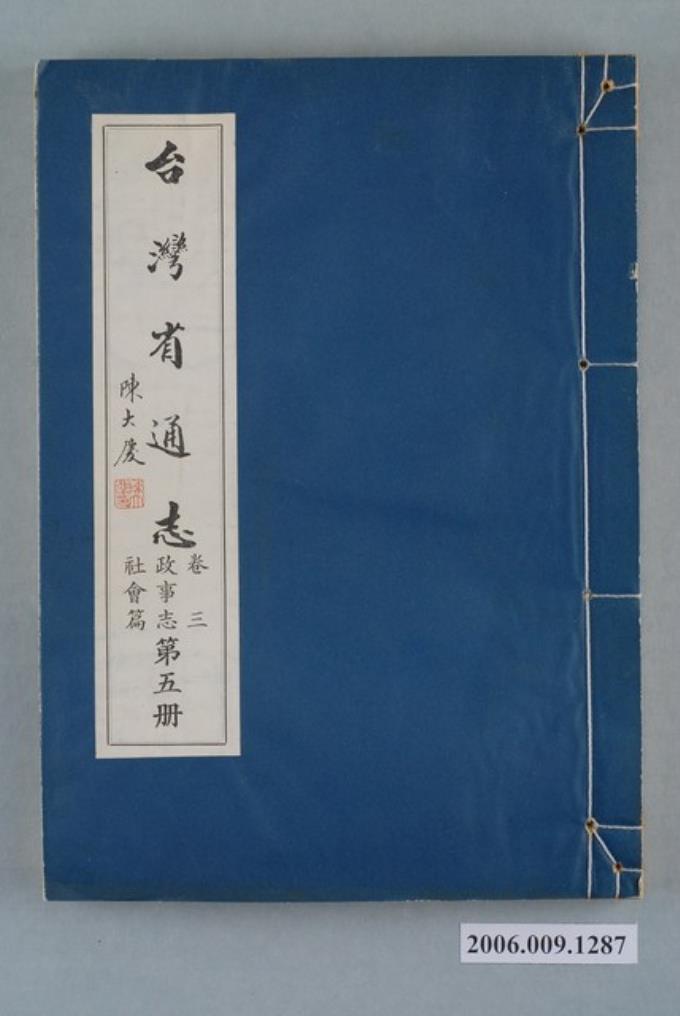 台灣省通志
卷三
政事志
社會篇
第五册
陳大慶
2006.009.1287